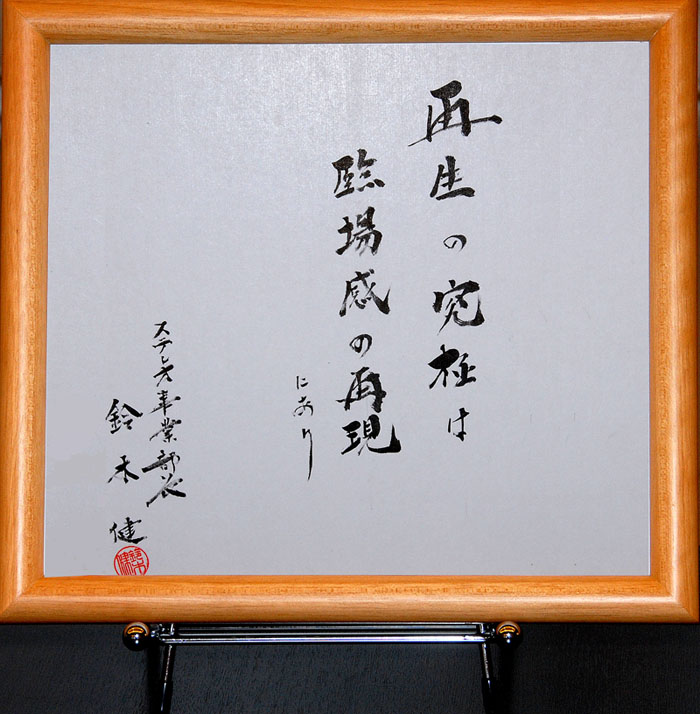 再生の究極は
臨場感の再現
にあり
ステレオ事業部長
鈴木健